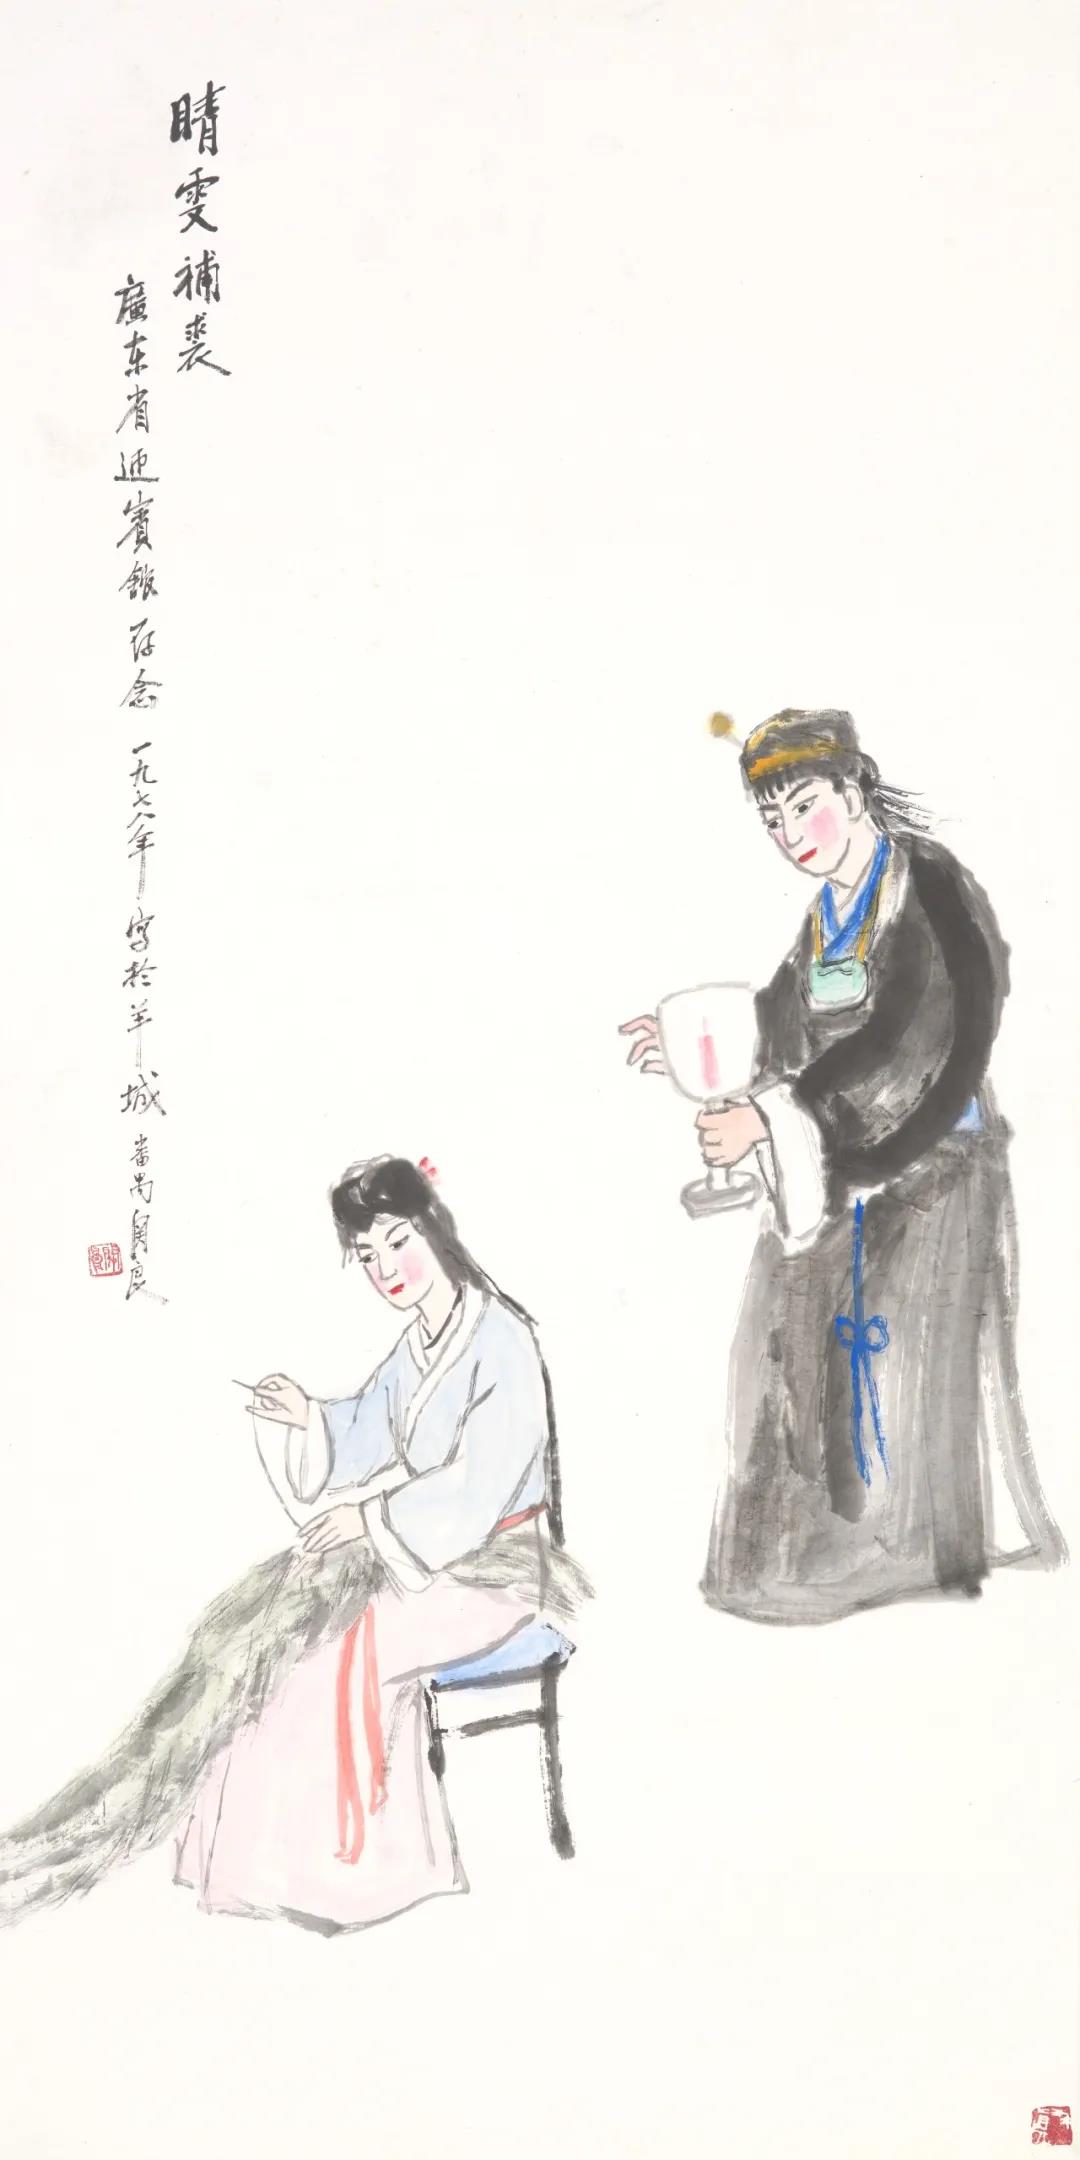 睛雯補裘
廣东省迎賓館存念 一九七八年寫於羊城 番禺關良
關良